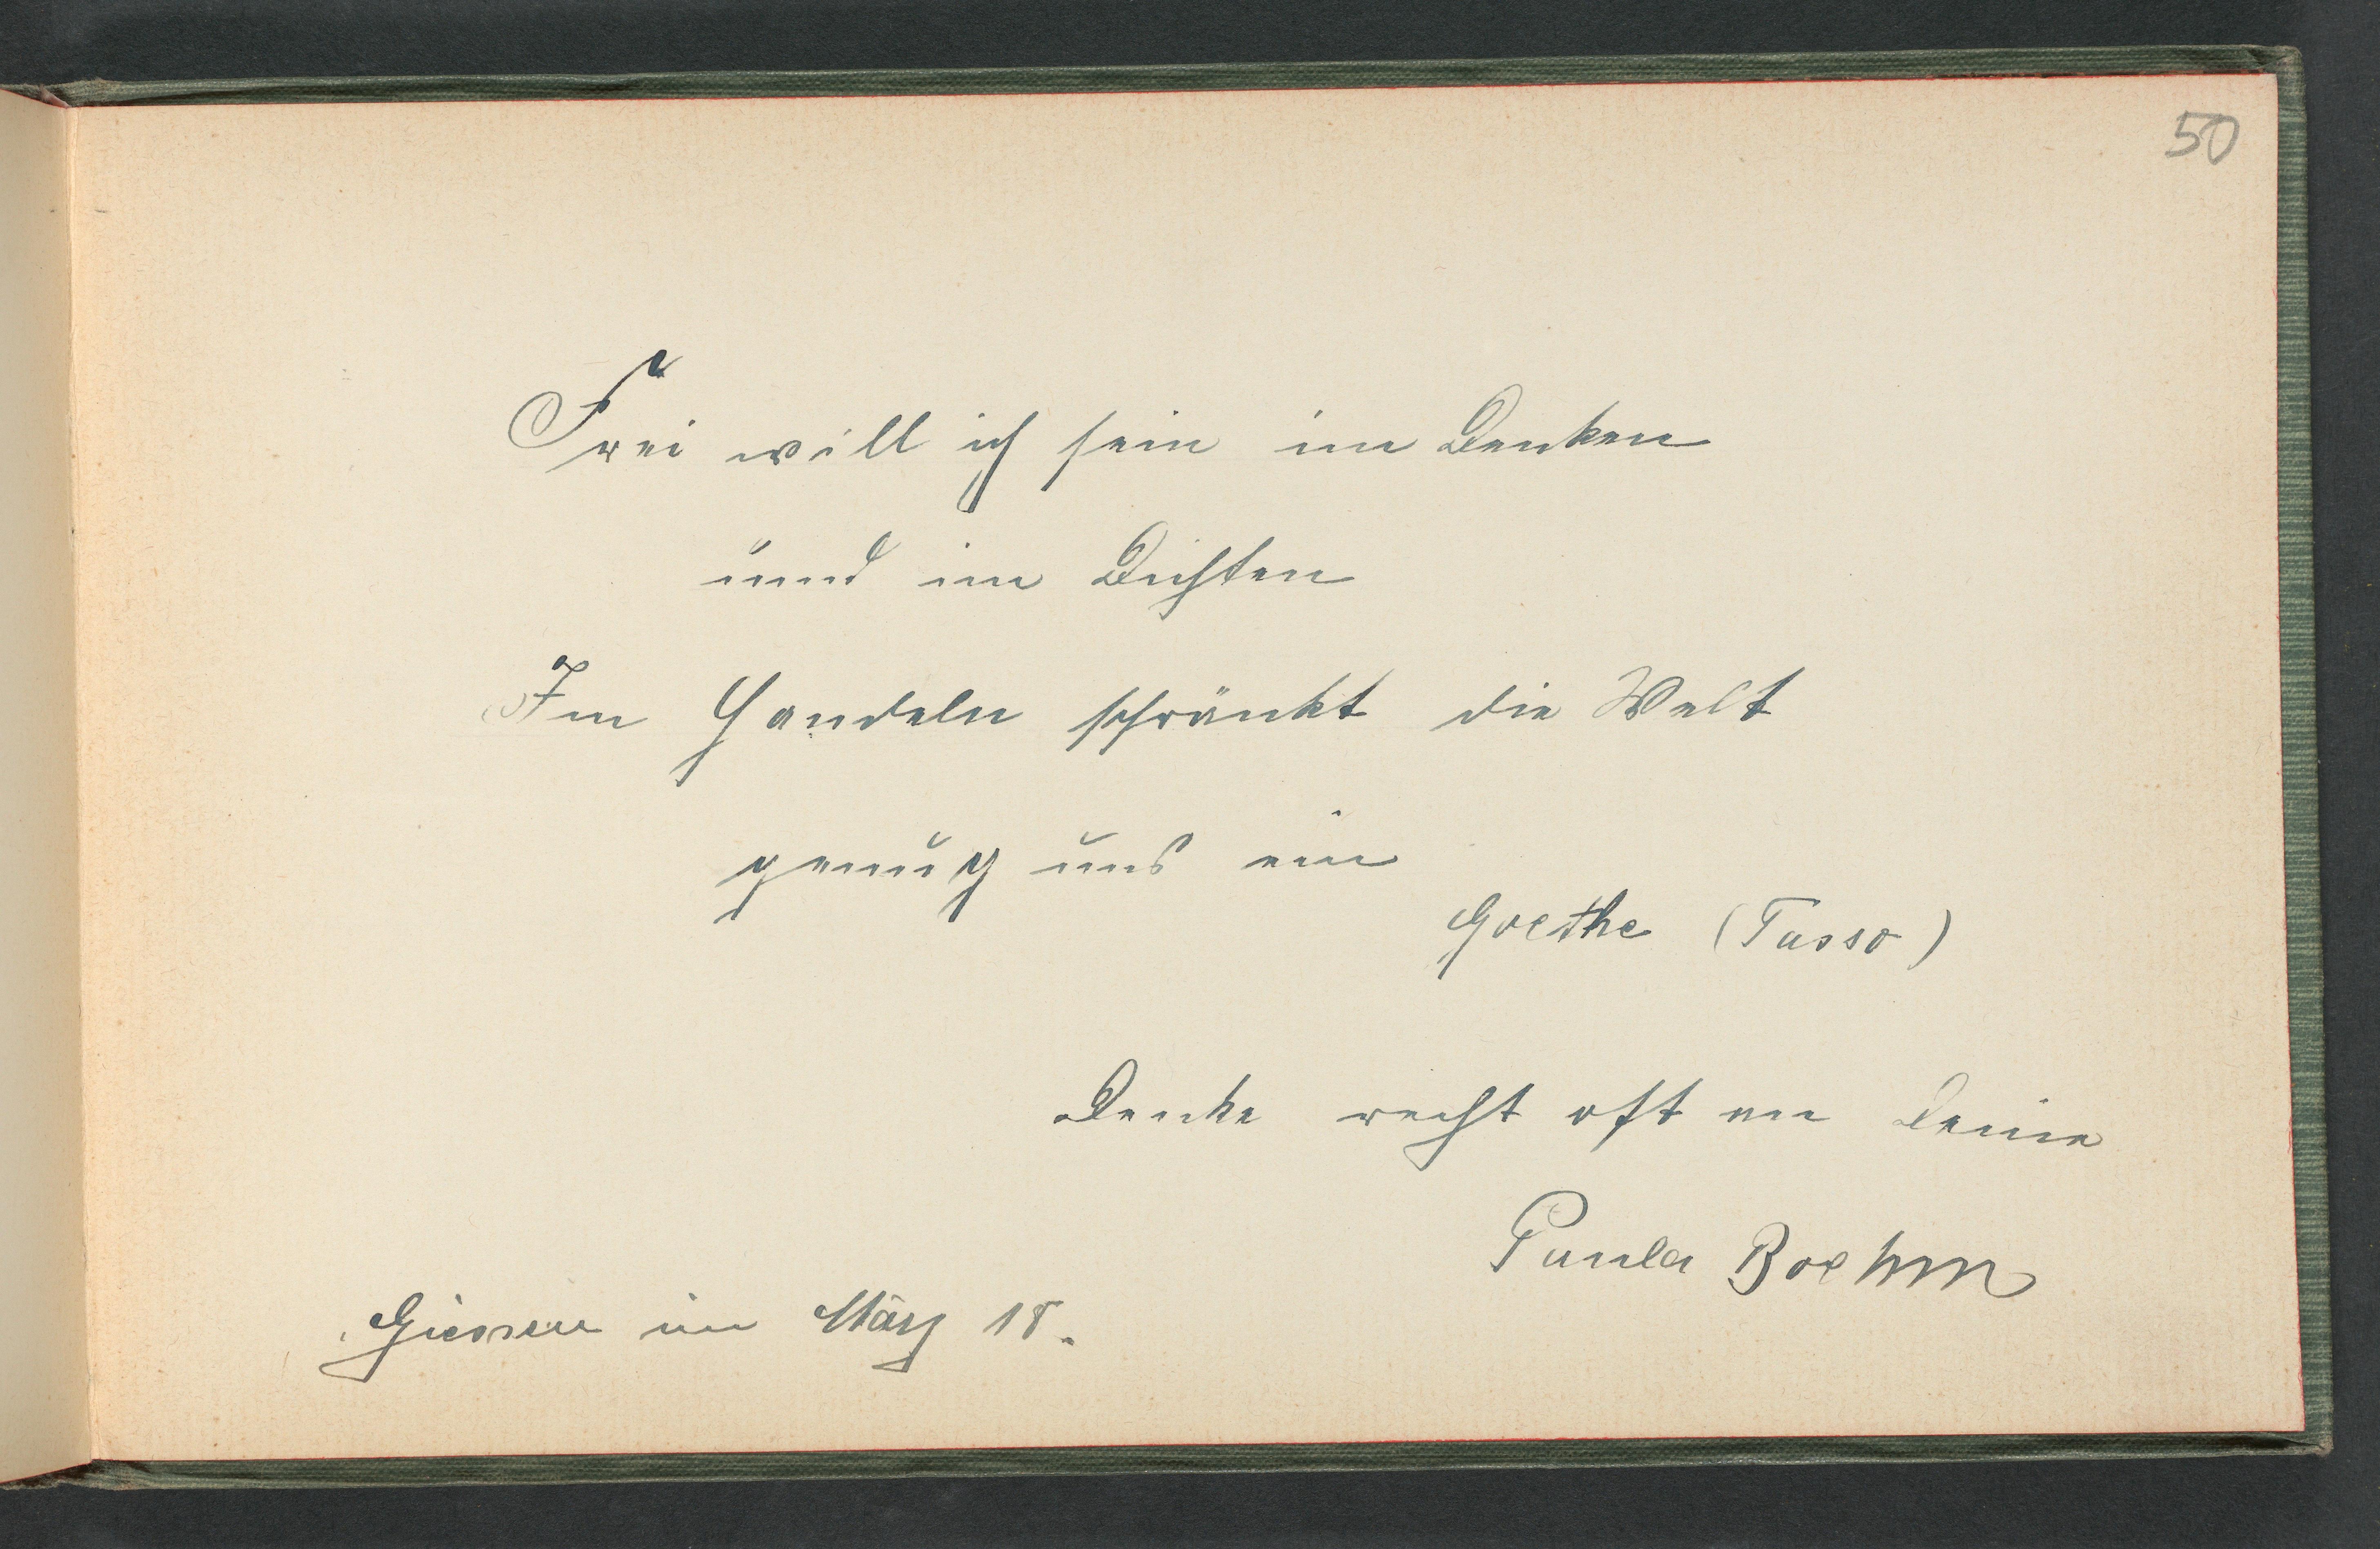 50
Frei will ich sein im Denken
und im Dichten
Im Handeln schränkt die Welt
genug uns ein
Goethe (Tasso)
Denke recht oft an Deine
Paula Boehm
Giessen im März 18.